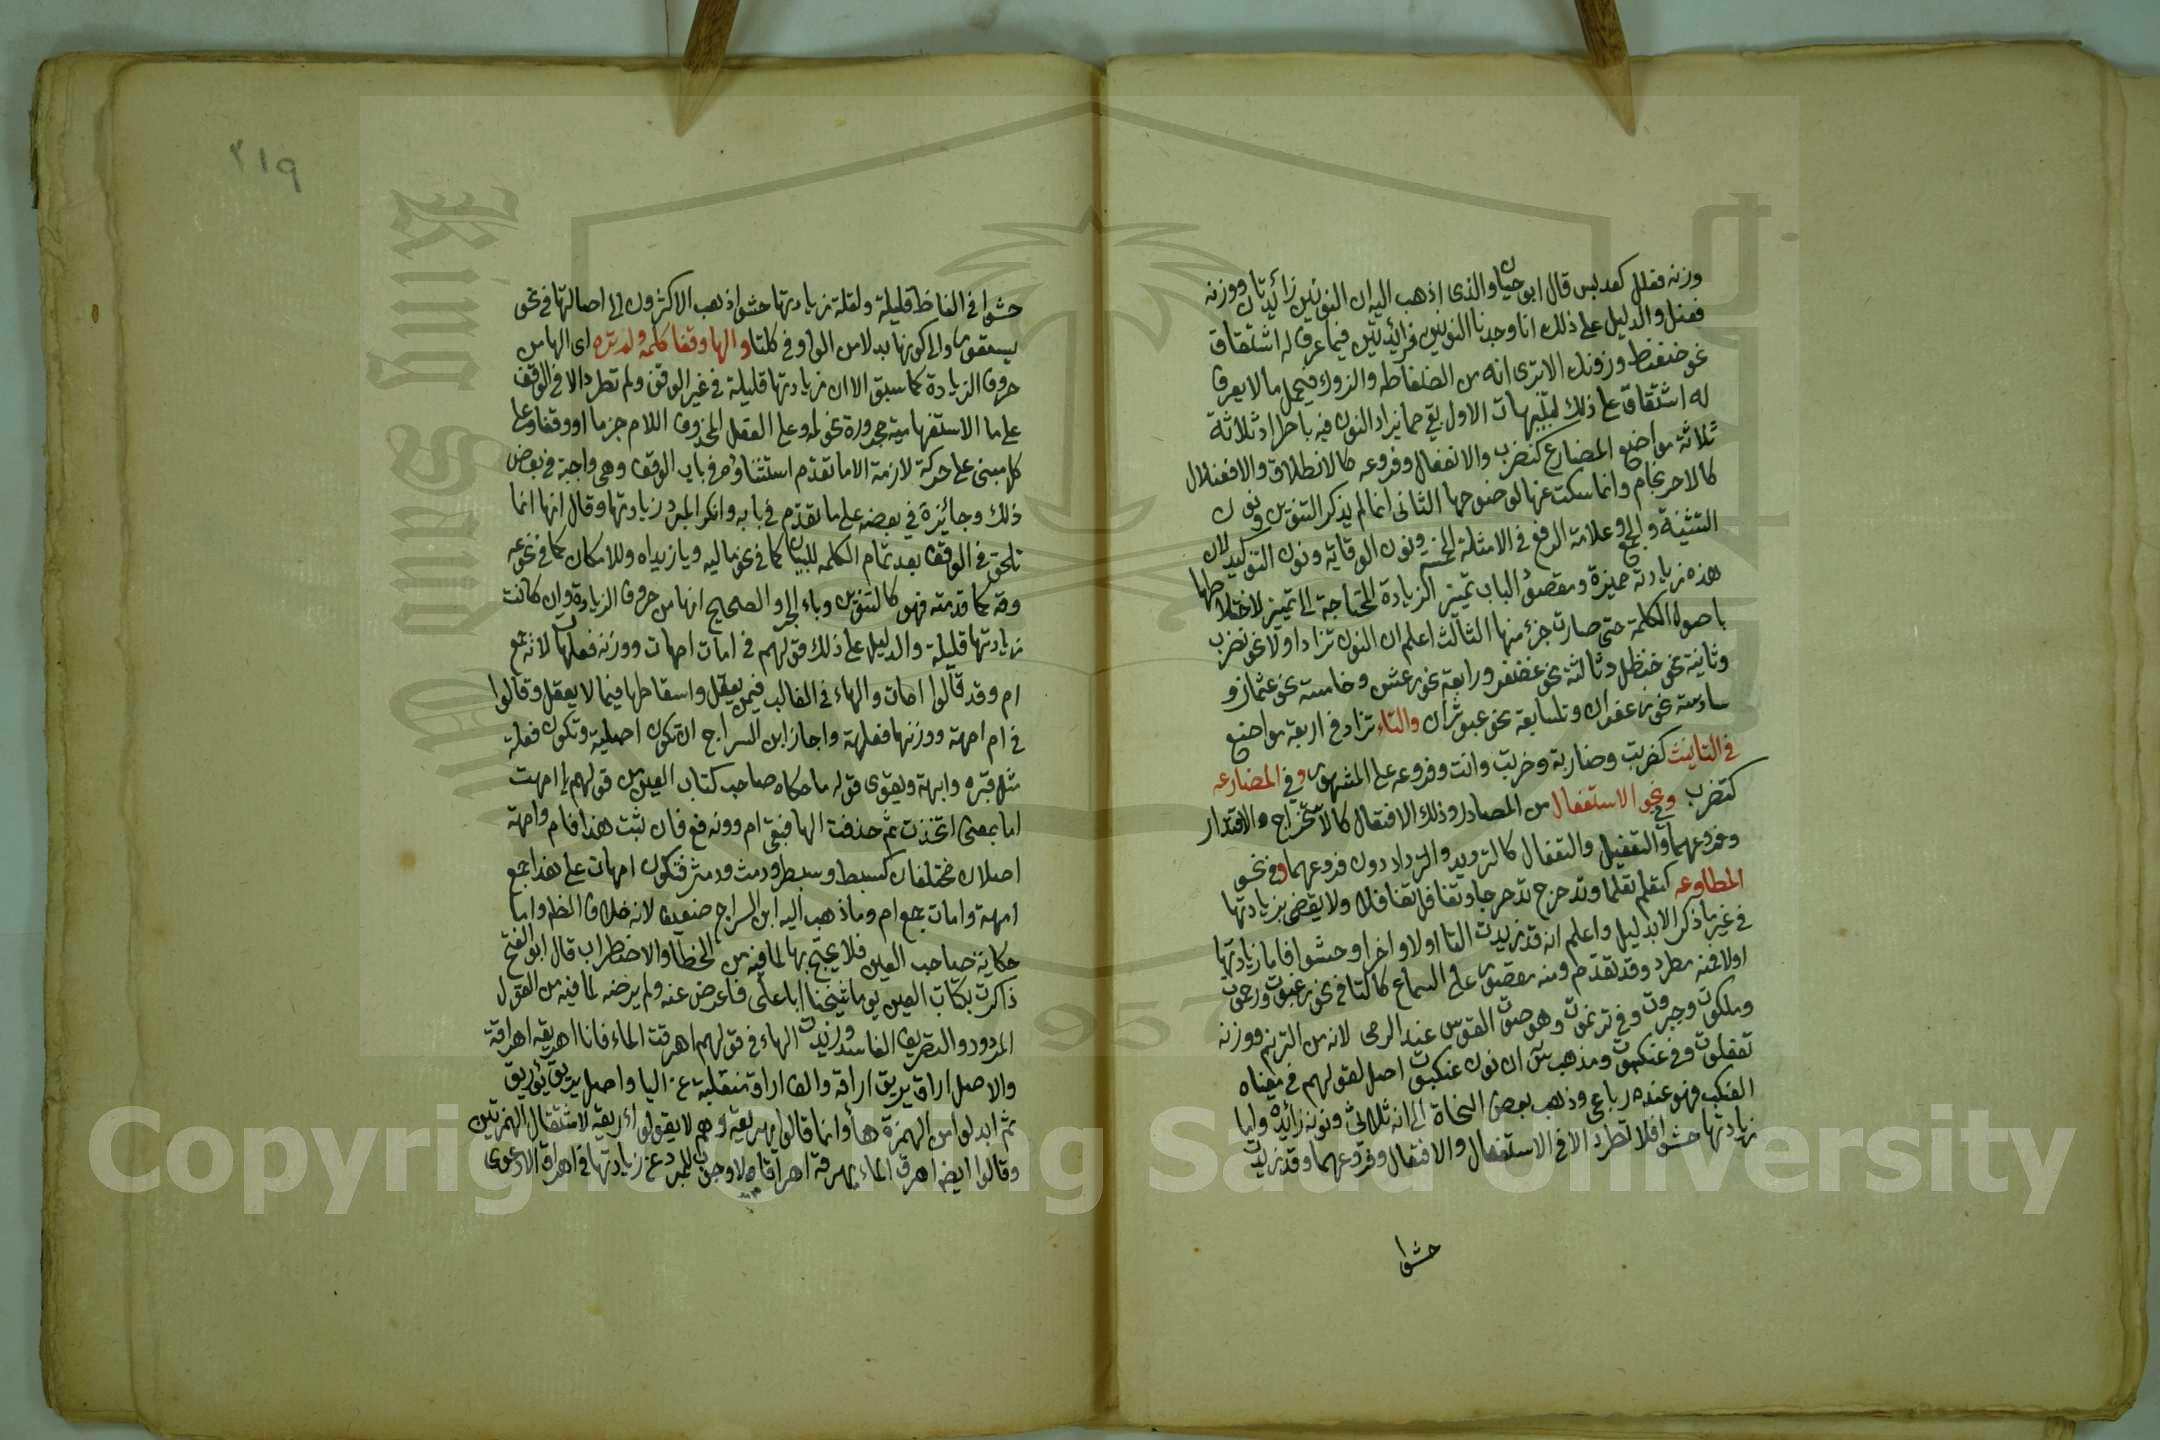 وزنه فعلل كعدبس قال ابو حيان والذى اذهب اليه ان النونين زائدتان ووزنه
فعنل والدليل على ذلك انا وجدنا النونين مزائدتين فيما عرف له اشتقاق
نحو ضفنط وزونك الا ترى انه من الضفاطه والزوك فيحمل ما لا يعرف
له اشتقاق على ذلك تنبيهات الاول بقى مما يزاد النون فيه باطراد ثلاثة
ثلاثة مواضع المضارع كنضرب والانفعال وفروعه كالانطلاق والافعنلال
كالاحرنجام وانما سكت عنها لوضوحها الثانى انما لم يذكر التنوين ونون
التثنية والجمع وعلامة الرفع فى الامثلة الخمسة ونون الوقاية ونون التوكيد لان
هذه زيادة مميزة ومقصود الباب تمييز الزيادة المحتاجة الى تمييز لاختلاطها
باصول الكلمة حتى صارت جزء منها الثالث اعلم ان النون تزاد اولا نحو نضرب
وثانية نحو حنظل وثالثة نحو غضنفر ورابعة نحو رعشن وخامسة نحو عثمان و
سادسة نحو زعفران وسابعة نحو عبوثران والتاء تزاد فى اربعة مواضع
فى التانيث كضربت وضاربة وضربت وانت وفروعه على المشهور وفى المضارعه
كتضرب ونحو الاستفعال من المصادر وذلك الافتعال كالاستخراج والاقتدار
وفروعهما وفى التفعيل والتفعال كالترديد والترداد دون فروعهما وفى نحو
المطاوعه كتعلم تعلما وتدحرج تدحرجا وتغافل تغافلا ولا يقضى بزيادتها
فى غير ما ذكر الا بدليل واعلم انه قد زيدت التا اولا واخرا وحشوا فاما زيادتها
اولا فمنه مطرد وقد تقدم ومنه مقصور على السماع كالتا فى نحو رغبوت ورحموت
وملكوت وجبروت وفى ترنموت وهو صوت القوس عند الرمى لانه من الترنم ووزنه
تفعلوت وفى عنكبوت ومذهب س ان نون عنكبوت اصل لقولهم فى معناه
العنكب فهو عنده رباعى وذهب بعض النحاة الى انه ثلاثى ونونه زائده واما
زيادتها حشوا فلا تطرد الا فى الاستفعال والافتعال وفروعهما وقد زيدت
حشوا
٢١٩
حشوا فى الفاظ قليلة ولقلة زيادتها حشوا ذهب الاكثرون الى اصالتها فى نحو
يستعور والى كونها بدلا من الواو فى كلتا والها وقفا كلمه ولم تره اى الها من
حروف الزيادة كما سبق الا ان زيادتها قليلة فى غير الوقف ولم تطرد الا فى الوقف
على ما الاستفهامية مجرورة نحو لمه وعلى الفعل المحذوف اللام جزما او وقفا وعلى
كل مبنى على حركة لازمة الا ما تقدم استثناؤه فى باب الوقف وهى واجبة فى بعض
ذلك وجائزة فى بعضه على ما تقدم فى بابه وانكر المبرد زيادتها وقال انها انما
تلحق فى الوقف بعد تمام الكلمه للبيان كما فى نحو ماليه ويا زيداه وللامكان كما فى نحو عه
وقه كما قدمته فهو كالتنوين وباء الجر والصحيح انها من حروف الزيادة وان كانت
زيادتها قليلة والدليل على ذلك قولهم فى امات امهات ووزنه فعلهات لانه جمع
ام وقد قالوا امات والهاء فى الغالب فيمن يعقل واسقاطها فيما لا يعقل وقالوا
فى ام امهة ووزنها فعلهة واجاز ابن السراج ان تكون اصلية وتكون فعلة
مثل قبره وابهة ويقوى قوله ما حكاه صاحب كتاب العين من قولهم امهت
اما بمعنى اتخذت ثم حذفت الها فبقى ام ووزنه فع فان ثبت هذا فام وامهة
اصلان مختلفان كسبط وسبطر ودمث ودمثر فتكون امهات على هذا جمع
امهة وامات جمع ام وما ذهب اليه ابن السراج ضعيف لانه خلاف الظ واما
حكاية صاحب العين فلا يحتج بها لما فيه من الخطا والاضطراب قال ابو الفتح
ذاكرت بكتاب العين يوما شيخنا ابا على فاعرض عنه ولم يرضه لما فيه من القول
المردود والتصريف الفاسد وزيدت الهاء فى قولهم اهرقت الماء فانا اهريقه اهراقة
والاصل اراق يريق اراقة والف اراق منقلبة عن اليا واصل يريق يؤريق
ثم ابدلوا من الهمزة هاء وانما قالوا يهريقه وهم لا يقولون اؤريقه لاستثقال الهمزتين
وقالوا ايضا اهرق الماء يهرقه اهراقا ولا وجواب للمبرد عن زيادتها فى اهراق الا دعوى